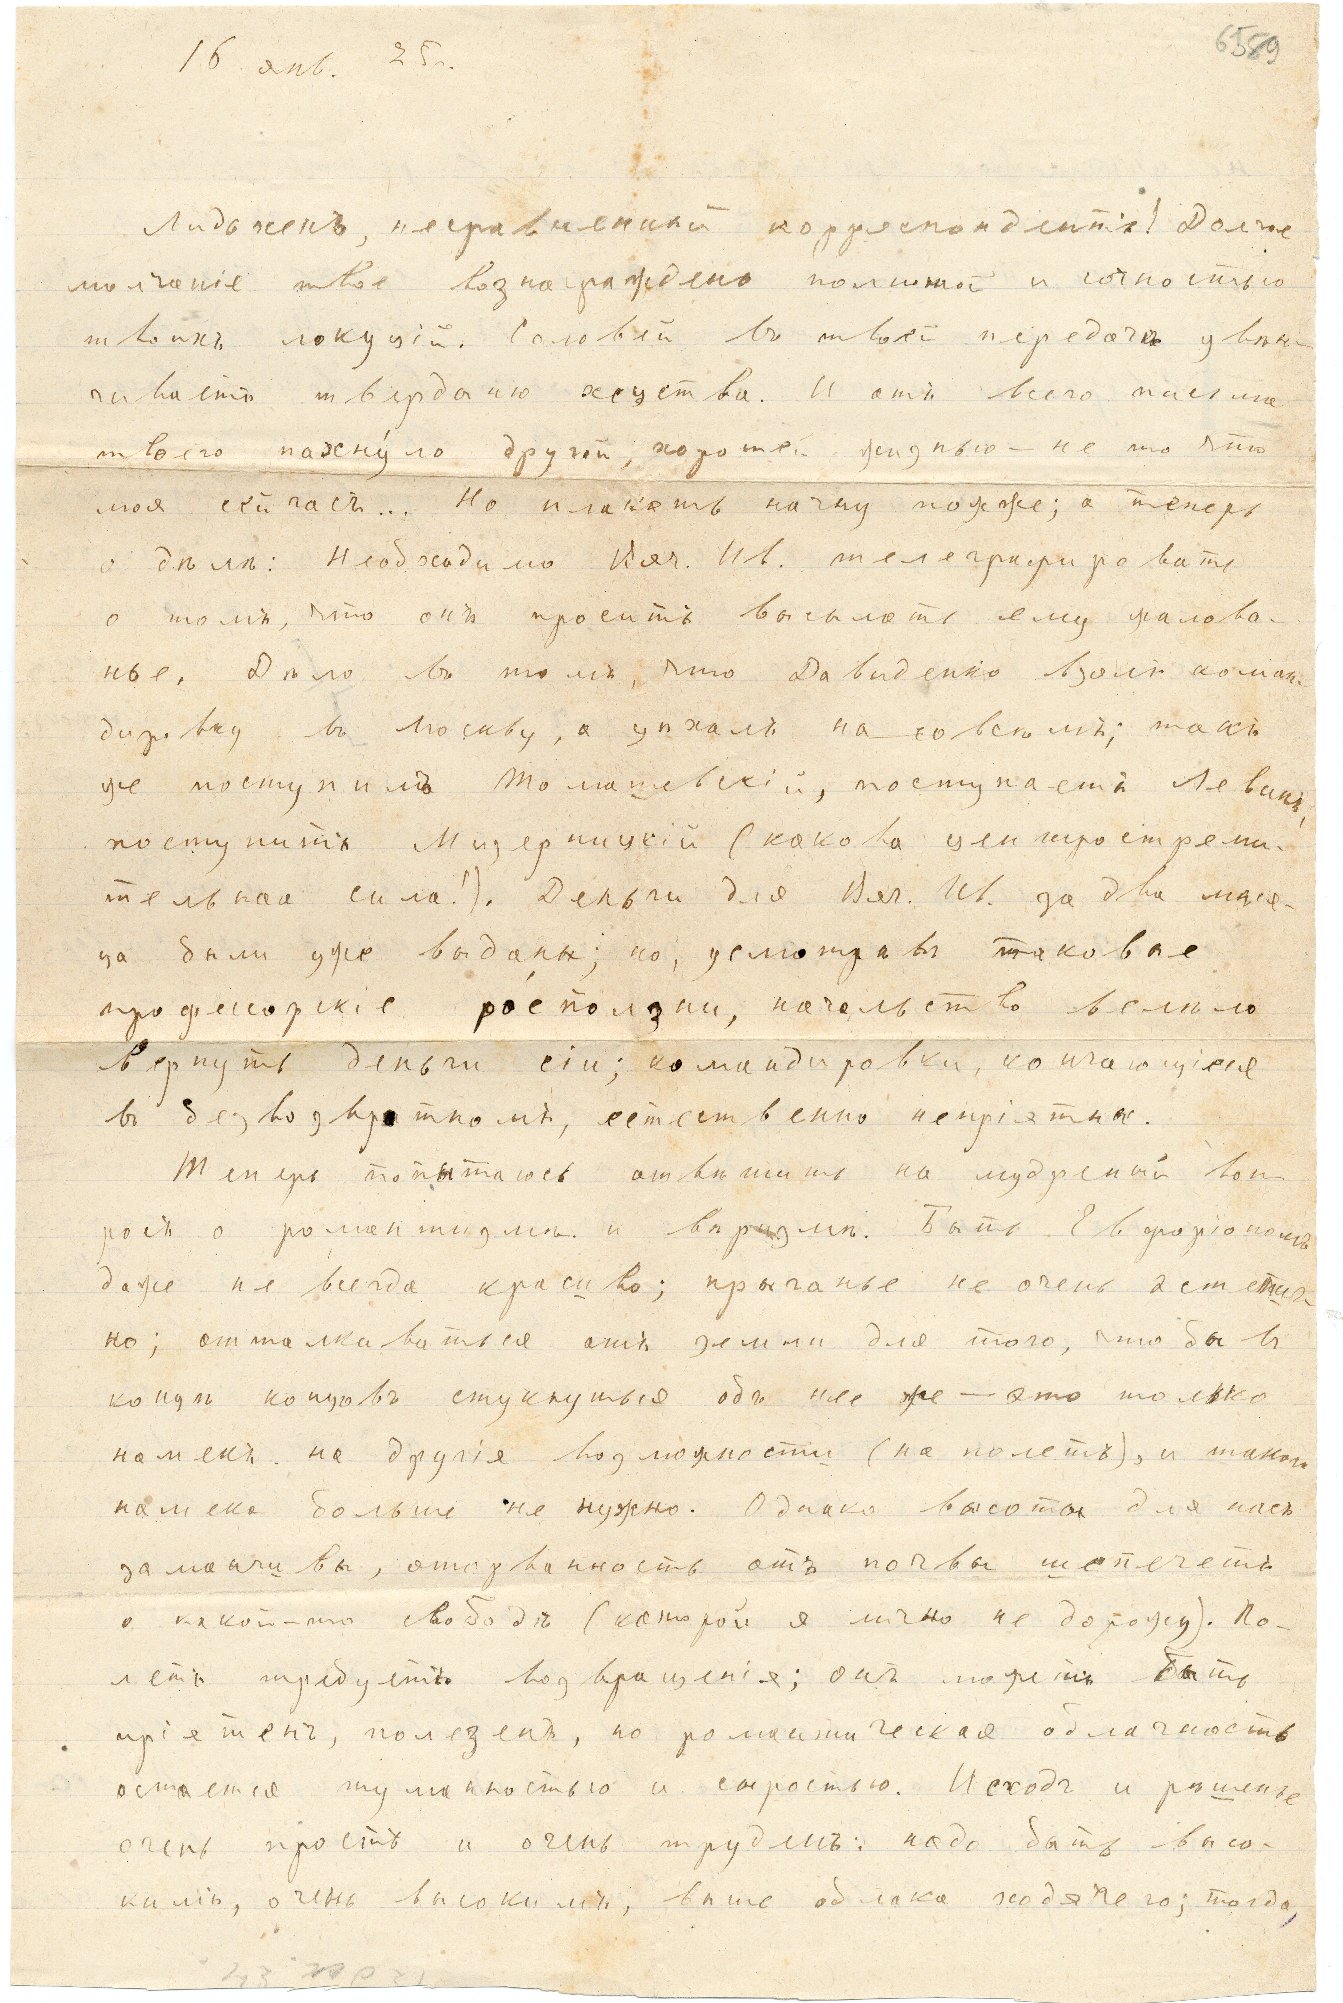 6589
16 янв. 25 г.
несравненный корреспондентъ! Долгое
молчаніе твое вознаграждено полнотой и сочностью
твоихъ локуцій. Соловей въ твоей передачѣ увѣн-
чиваетъ твердыню хеуства. И отъ всего письма
твоего пахну́ло другой, хорошей жизнью — не то что
моя сейчасъ... Но плакать начну позже; а теперь
о дѣлѣ: Необходимо Вяч. Ив. телеграфировать
о томъ, что онъ проситъ высылать ему жалова-
нье. Дѣло въ томъ, что Давиденко взялъ коман-
дировку въ Москву, а уѣхалъ на совсѣмъ; такъ
же поступилъ Томашевскій, поступаетъ Левинъ,
поступитъ Мизерницкій (какова центростреми-
тельная сила!). Деньги для Вяч. Ив. за два мѣся-
ца были уже выданы; но, усмотрѣвъ таковые
професорскіе ро́сползни, начальство велѣло
вернуть деньги сіи; командировки, кончающіеся
въ безвозвратномъ, естественно непріятны.
Теперь попытаюсь отвѣтить на мудреный воп-
росъ о романтизмѣ и вѣризмѣ. Быть Евфоріономъ
даже не всегда красиво; прыганье не очень эстетич-
но; отталкиваться отъ земли для того, чтобы въ
концѣ концовъ стукнуться объ нее же — это только
намекъ на другія возможности (на полетъ), и такого
намека больше не нужно. Однако высоты для насъ
заманчивы, оторванность отъ почвы шепчетъ
о какой-то свободѣ (которой я лично не дорожу). По-
летъ требуетъ возвращенія; онъ можетъ быть
пріятенъ, полезенъ, но романтическая облачность
остается туманностью и сыростью. Исходъ и рѣшенье
очень простъ и очень труденъ: надо быть высо-
кимъ, очень высокимъ, выше облака ходячего; тогда,